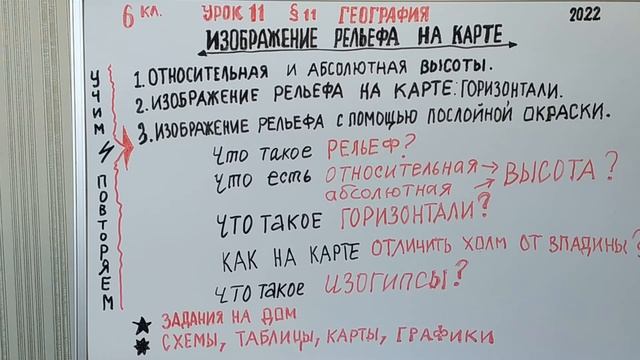 6 КЛ. УРОК 11 § 11 ГЕОГРАФИЯ 2022
ИЗОБРАЖЕНИЕ РЕЛЬЕФА НА КАРТЕ
УЧИМ ПОВТОРЯЕМ
1. ОТНОСИТЕЛЬНАЯ И АБСОЛЮТНАЯ ВЫСОТЫ.
2. ИЗОБРАЖЕНИЕ РЕЛЬЕФА НА КАРТЕ: ГОРИЗОНТАЛИ.
3. ИЗОБРАЖЕНИЕ РЕЛЬЕФА С ПОМОЩЬЮ ПОСЛОЙНОЙ ОКРАСКИ.
Что такое РЕЛЬЕФ?
Что есть относительная → ВЫСОТА?
абсолютная
ЧТО ТАКОЕ ГОРИЗОНТАЛИ?
КАК НА КАРТЕ ОТЛИЧИТЬ ХОЛМ ОТ ВПАДИНЫ?
ЧТО ТАКОЕ ИЗОГИПСЫ?
★ ЗАДАНИЯ НА ДОМ
* СХЕМЫ, ТАБЛИЦЫ, КАРТЫ, ГРАФИКИ